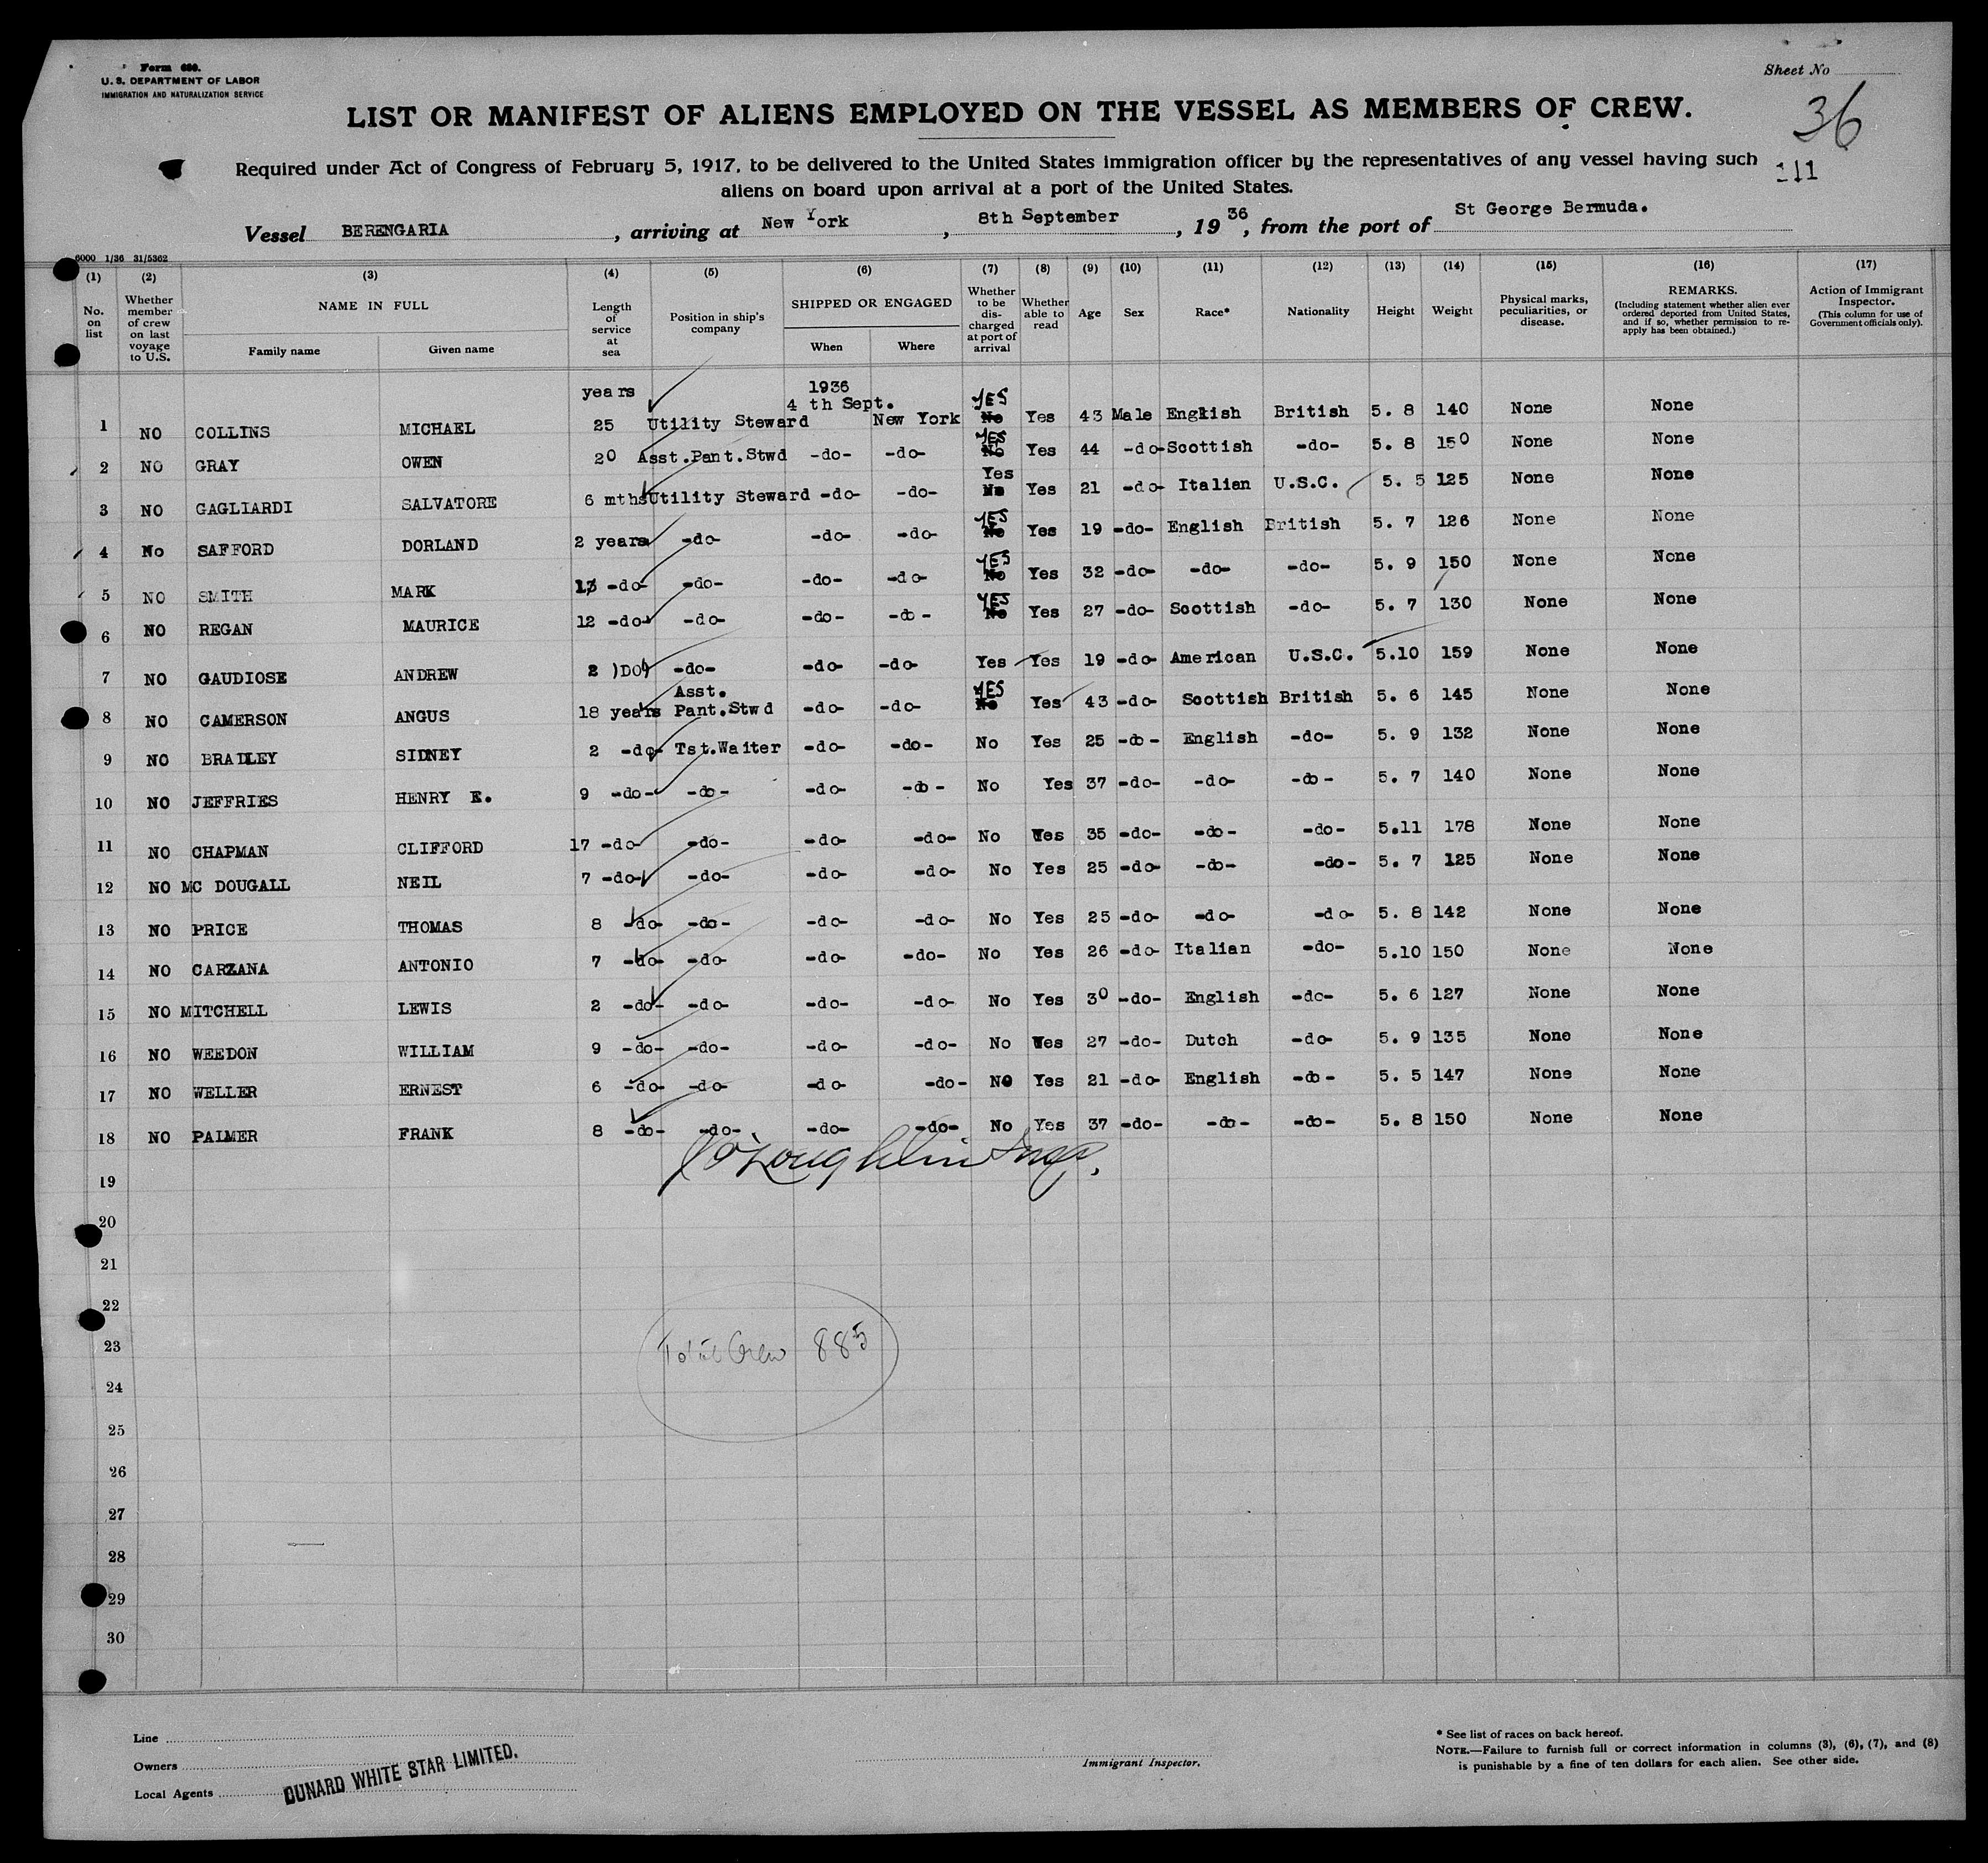 Form 680.
U. S. DEPARTMENT OF LABOR
IMMIGRATION AND NATURALIZATION SERVICE
Sheet No
36
LIST OR MANIFEST OF ALIENS EMPLOYED ON THE VESSEL AS MEMBERS OF CREW.
Required under Act of Congress of February 5, 1917, to be delivered to the United States immigration officer by the representatives of any vessel having such
aliens on board upon arrival at a port of the United States.
111
Vessel BERENGARIA, arriving at New York, 8th September, 1936, from the port of St George Bermuda.
6000 1/36 31/5362
(1) (2) (3) (4) (5) (6) (7) (8) (9) (10) (11) (12) (13) (14) (15) (16) (17)
No. on list
Whether member of crew on last voyage to U.S.
NAME IN FULL
Family name Given name
Length of service at sea
Position in ship's company
SHIPPED OR ENGAGED
When Where
Whether to be discharged at port of arrival
Whether able to read
Age Sex Race* Nationality Height Weight
Physical marks, peculiarities, or disease.
REMARKS.
(Including statement whether alien ever ordered deported from United States, and if so, whether permission to re-apply has been obtained.)
Action of Immigrant Inspector.
(This column for use of Government officials only).
years 1936
4 th Sept.
1 NO COLLINS MICHAEL 25 Utility Steward New York YES No Yes 43 Male English British 5. 8 140 None None
2 NO GRAY OWEN 20 Asst.Pant.Stwd -do- -do- YES No Yes 44 -do- Scottish -do- 5. 8 150 None None
3 NO GAGLIARDI SALVATORE 6 mths Utility Steward -do- -do- Yes No Yes 21 -do- Italian U.S.C. 5. 5 125 None None
4 No SAFFORD DORLAND 2 years -do- -do- -do- YES No Yes 19 -do- English British 5. 7 126 None None
5 NO SMITH MARK -do- -do- -do- -do- YES No Yes 32 -do- -do- -do- 5. 9 150 None None
6 NO REGAN MAURICE 12 -do- -do- -do- -do- YES No Yes 27 -do- Scottish -do- 5. 7 130 None None
7 NO GAUDIOSE ANDREW 2 )DO) -do- -do- -do- Yes Yes 19 -do- American U.S.C. 5.10 159 None None
8 NO CAMERSON ANGUS 18 years Asst. Pant.Stwd -do- -do- YES No Yes 43 -do- Scottish British 5. 6 145 None None
9 NO BRADLEY SIDNEY 2 -do- Tst.Waiter -do- -do- No Yes 25 -do- English -do- 5. 9 132 None None
10 NO JEFFRIES HENRY E. 9 -do- -do- -do- -do- No Yes 37 -do- -do- -do- 5. 7 140 None None
11 NO CHAPMAN CLIFFORD 17 -do- -do- -do- -do- No Yes 35 -do- -do- -do- 5.11 178 None None
12 NO MC DOUGALL NEIL 7 -do- -do- -do- -do- No Yes 25 -do- -do- -do- 5. 7 125 None None
13 NO PRICE THOMAS 8 -do- -do- -do- -do- No Yes 25 -do- -do- -do- 5. 8 142 None None
14 NO CARZANA ANTONIO 7 -do- -do- -do- -do- No Yes 26 -do- Italian -do- 5.10 150 None None
15 NO MITCHELL LEWIS 2 -do- -do- -do- -do- No Yes 30 -do- English -do- 5. 6 127 None None
16 NO WEEDON WILLIAM 9 -do- -do- -do- -do- No Yes 27 -do- Dutch -do- 5. 9 135 None None
17 NO WELLER ERNEST 6 -do- -do- -do- -do- NO Yes 21 -do- English -do- 5. 5 147 None None
18 NO PALMER FRANK 8 -do- -do- -do- -do- No Yes 37 -do- -do- -do- 5. 8 150 None None
O'Loughlin Insp.
19
20
21
22
23
Total Crew 885
24
25
26
27
28
29
30
Line
Owners
Local Agents
CUNARD WHITE STAR LIMITED.
Immigrant Inspector.
* See list of races on back hereof.
NOTE.—Failure to furnish full or correct information in columns (3), (6), (7), and (8)
is punishable by a fine of ten dollars for each alien. See other side.